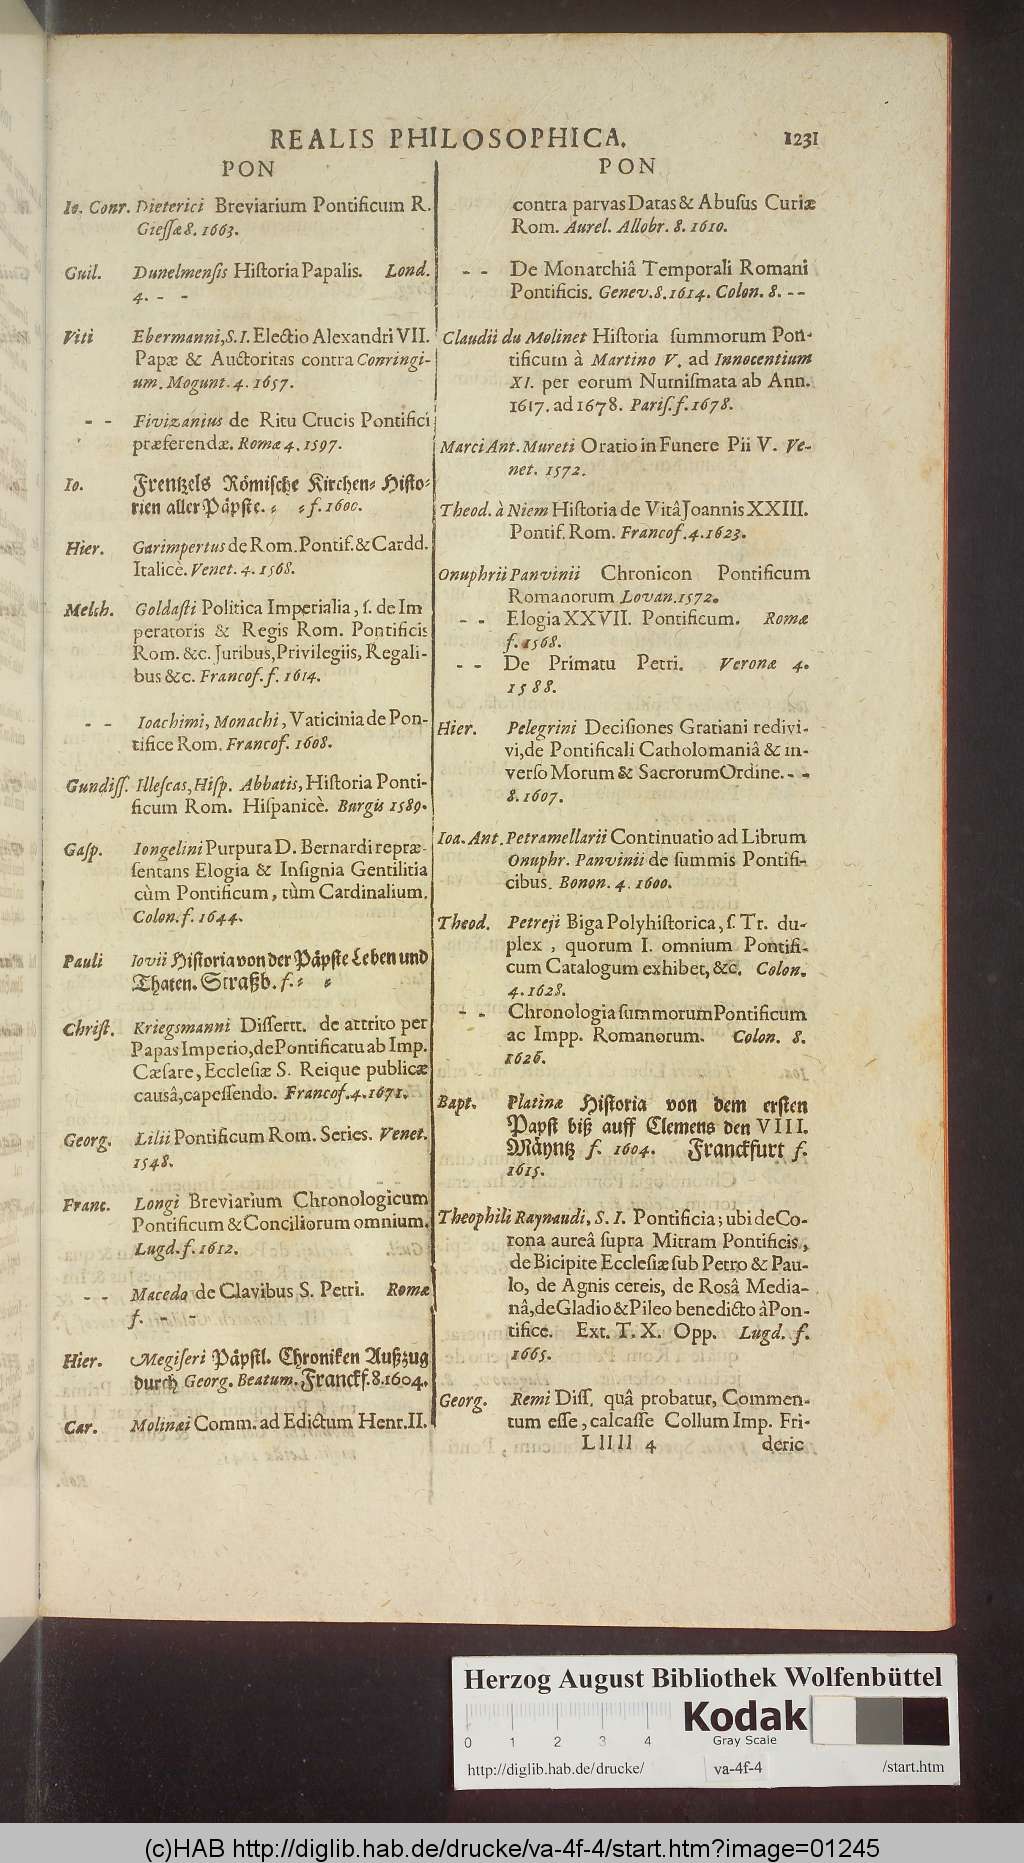 REALIS PHILOSOPHICA. 1231
PON
Io. Conr. Dieterici Breviarium Pontificum R.
Giessæ 8. 1663.
Guil. Dunelmensis Historia Papalis. Lond.
4. - -
Viti Ebermanni, S. I. Electio Alexandri VII.
Papæ & Auctoritas contra Conringi-
um. Mogunt. 4. 1657.
- - Fivizanius de Ritu Crucis Pontifici
præferendæ. Romæ 4. 1597.
Io. Frentzels Römische Kirchen- Histo-
rien aller Päpste. - - f. 1600.
Hier. Garimpertus de Rom. Pontif. & Cardd.
Italicè. Venet. 4. 1568.
Melch. Goldasti Politica Imperialia, s. de Im
peratoris & Regis Rom. Pontificis
Rom. &c. Juribus, Privilegiis, Regali-
bus &c. Francof. f. 1614.
- - Ioachimi, Monachi, Vaticinia de Pon-
tifice Rom. Francof. 1608.
Gundiss. Illescas, Hisp. Abbatis, Historia Ponti-
ficum Rom. Hispanicè. Burgis 1589.
Gasp. Iongelini Purpura D. Bernardi repræ-
sentans Elogia & Insignia Gentilitia
cùm Pontificum, tùm Cardinalium.
Colon. f. 1644.
Pauli Iovii Historia von der Päpste Leben und
Thaten. Straßb. f. - -
Christ. Kriegsmanni Dissertt. de attrito per
Papas Imperio, de Pontificatu ab Imp.
Cæsare, Ecclesiæ S. Reique publicæ
causâ, capessendo. Francof. 4. 1671.
Georg. Lilii Pontificum Rom. Series. Venet.
1548.
Franc. Longi Breviarium Chronologicum
Pontificum & Conciliorum omnium.
Lugd. f. 1612.
- - Macedo de Clavibus S. Petri. Romæ
f. - -
Hier. Megiseri Päpstl. Chroniken Außzug
durch Georg. Beatum. Franckf. 8. 1604.
Car. Molinæi Comm. ad Edictum Henr. II.
PON
contra parvas Datas & Abusus Curiæ
Rom. Aurel. Allobr. 8. 1610.
- - De Monarchiâ Temporali Romani
Pontificis. Genev. 8. 1614. Colon. 8. - -
Claudii du Molinet Historia summorum Pon-
tificum à Martino V. ad Innocentium
XI. per eorum Numismata ab Ann.
1617. ad 1678. Paris. f. 1678.
Marci Ant. Mureti Oratio in Funere Pii V. Ve-
net. 1572.
Theod. à Niem Historia de Vitâ Joannis XXIII.
Pontif. Rom. Francof. 4. 1623.
Onuphrii Panvinii Chronicon Pontificum
Romanorum Lovan. 1572.
- - Elogia XXVII. Pontificum. Romæ
f. 1568.
- - De Primatu Petri. Veronæ 4.
1588.
Hier. Pelegrini Decisiones Gratiani redivi-
vi, de Pontificali Catholomaniâ & in-
verso Morum & Sacrorum Ordine. - -
8. 1607.
Ioa. Ant. Petramellarii Continuatio ad Librum
Onuphr. Panvinii de summis Pontifi-
cibus. Bonon. 4. 1600.
Theod. Petreji Biga Polyhistorica, s. Tr. du-
plex, quorum I. omnium Pontifi-
cum Catalogum exhibet, &c. Colon.
4. 1628.
- - Chronologia summorum Pontificum
ac Impp. Romanorum. Colon. 8.
1626.
Bapt. Platinæ Historia von dem ersten
Papst biß auff Clemens den VIII.
Mäyntz f. 1604. Franckfurt f.
1615.
Theophili Raynaudi, S. I. Pontificia; ubi de Co-
rona aureâ supra Mitram Pontificis,
de Bicipite Ecclesiæ sub Petro & Pau-
lo, de Agnis cereis, de Rosâ Media-
nâ, de Gladio & Pileo benedicto à Pon-
tifice. Ext. T. X. Opp. Lugd. f.
1665.
Georg. Remi Diss. quâ probatur, Commen-
tum esse, calcasse Collum Imp. Fri-
Lllll 4 deric
Herzog August Bibliothek Wolfenbüttel
Kodak
Gray Scale
0 1 2 3 4
http://diglib.hab.de/drucke/ va-4f-4 /start.htm
(c)HAB http://diglib.hab.de/drucke/va-4f-4/start.htm?image=01245